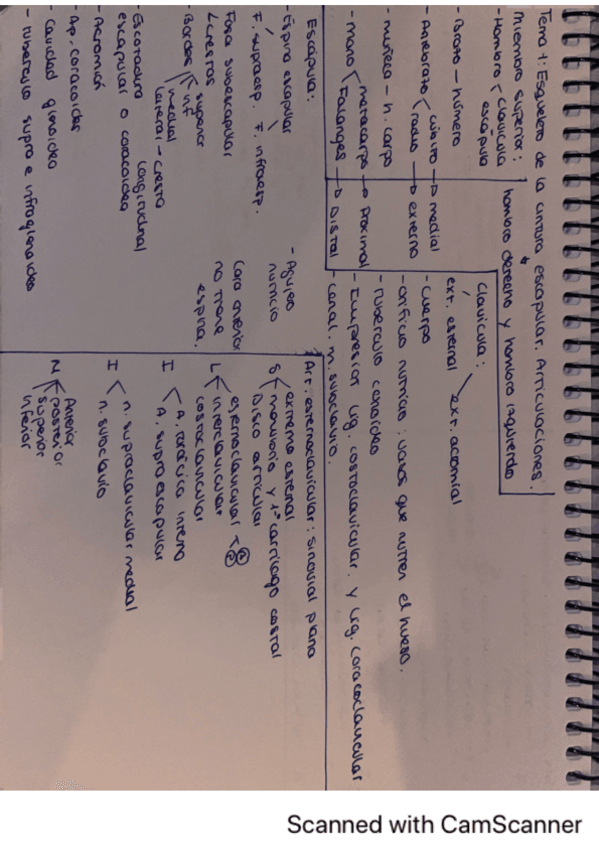 Tema 1: Esqueleto de la cintura escapular. Articulaciones.
Miembro superior: hombro derecho y hombro izquierdo
- Hombro < clavícula
escápula
- Brazo - húmero
- Antebrazo < cúbito → medial
radio → externo
- muñeca - h. carpo
- mano < metacarpo → Proximal
Falanges → Distal
Clavícula:
ext. esternal ext. acromial
- cuerpo
- orificio nutricio: vasos que nutren el hueso.
- Tubérculo conoideo
- Impresión lig. costoclavicular. y Lig. coracoclavicular
- canal. m. subclavio.
Escápula:
- Espina escapular
F. supraesp. F. infraesp.
Fosa subescapular
Crestas
- Bordes superior
inf
medial
lateral - cresta longitudinal
- Escotadura escapular o coracoidea
- Acromion
- Ap. coracoides
- Cavidad glenoidea
- Tubérculo supra e infraglenoideo
- Agujero nutricio
Cara anterior
no tiene
espina.
Art. esternoclavicular: sinovial plana
S < extremo esternal
manubrio y 1º cartílago costal
Disco articular
L < esternoclavicular
interclavicular
costoclavicular
I < A. torácica interna
A. supraescapular
I < n. supraclavicular medial
n. subclavio
N < Anterior
posterior
superior
Inferior
Scanned with CamScanner